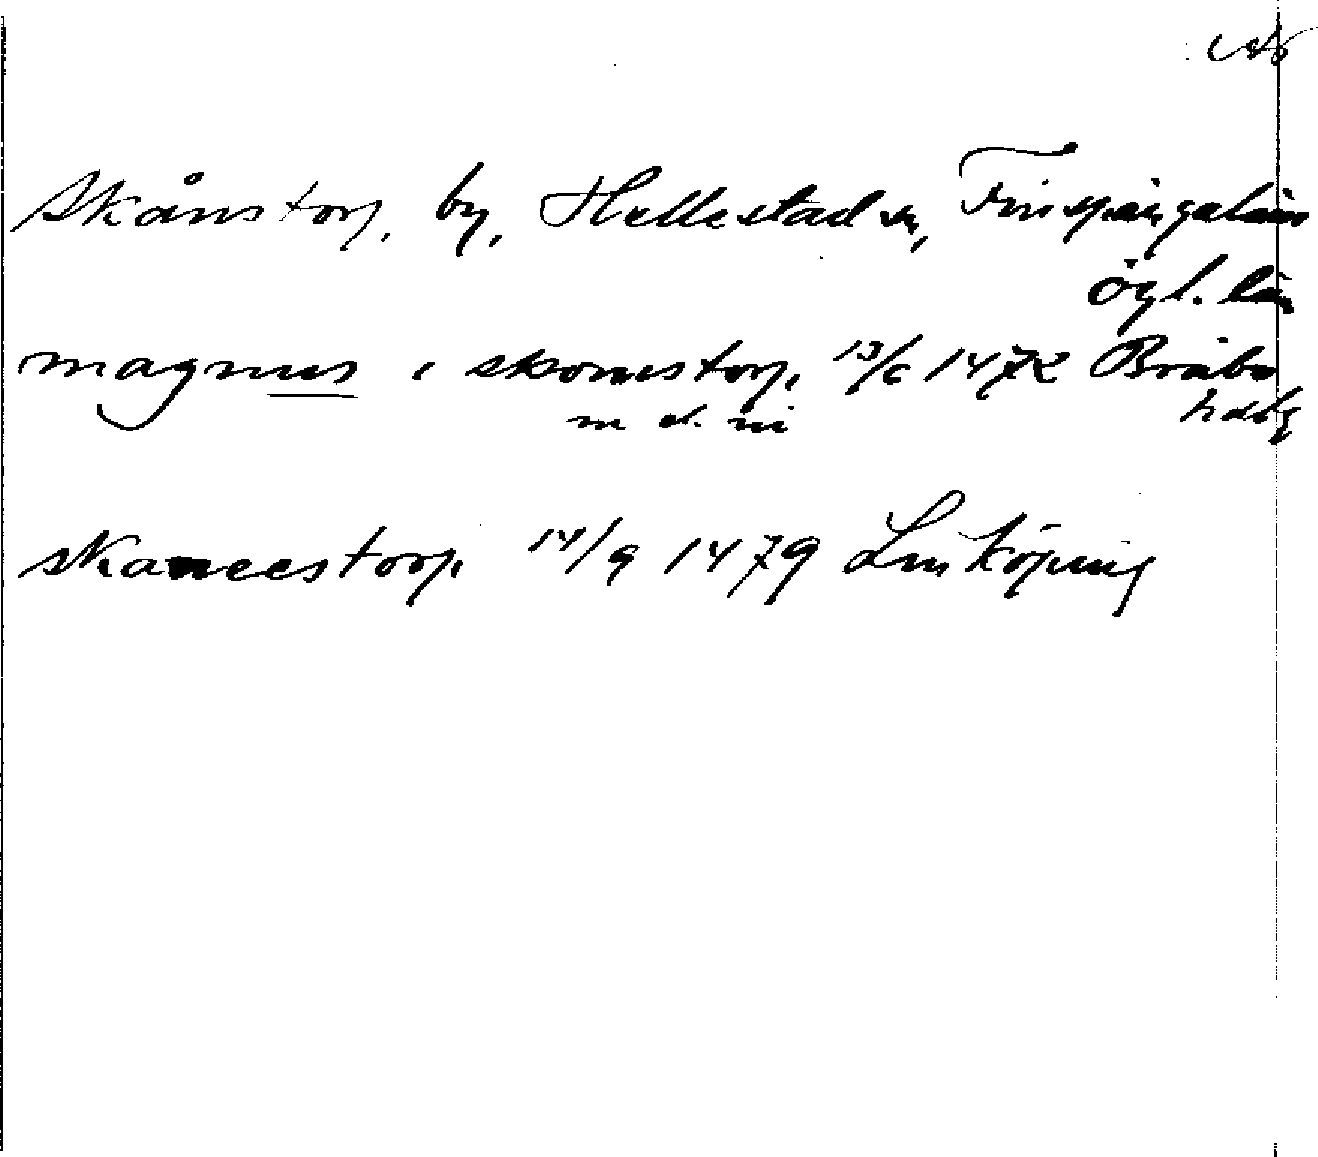 Skånstorp, by, Hellestad sn, Finspångalän
Ögl. län
magnus i skomstorp, 13/6 1472 Bråbo
m el. ni hdbg
skaneestorp, 14/9 1479 Linköping